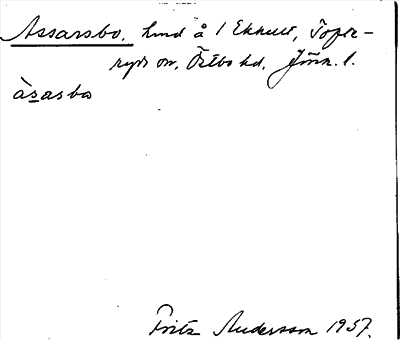 Assarsbo, hmd å 1 Ekhult, Tofte-
ryds sn, Östbo hd, Jönk. l.
àsasbo
Fritz Andersson 1957.